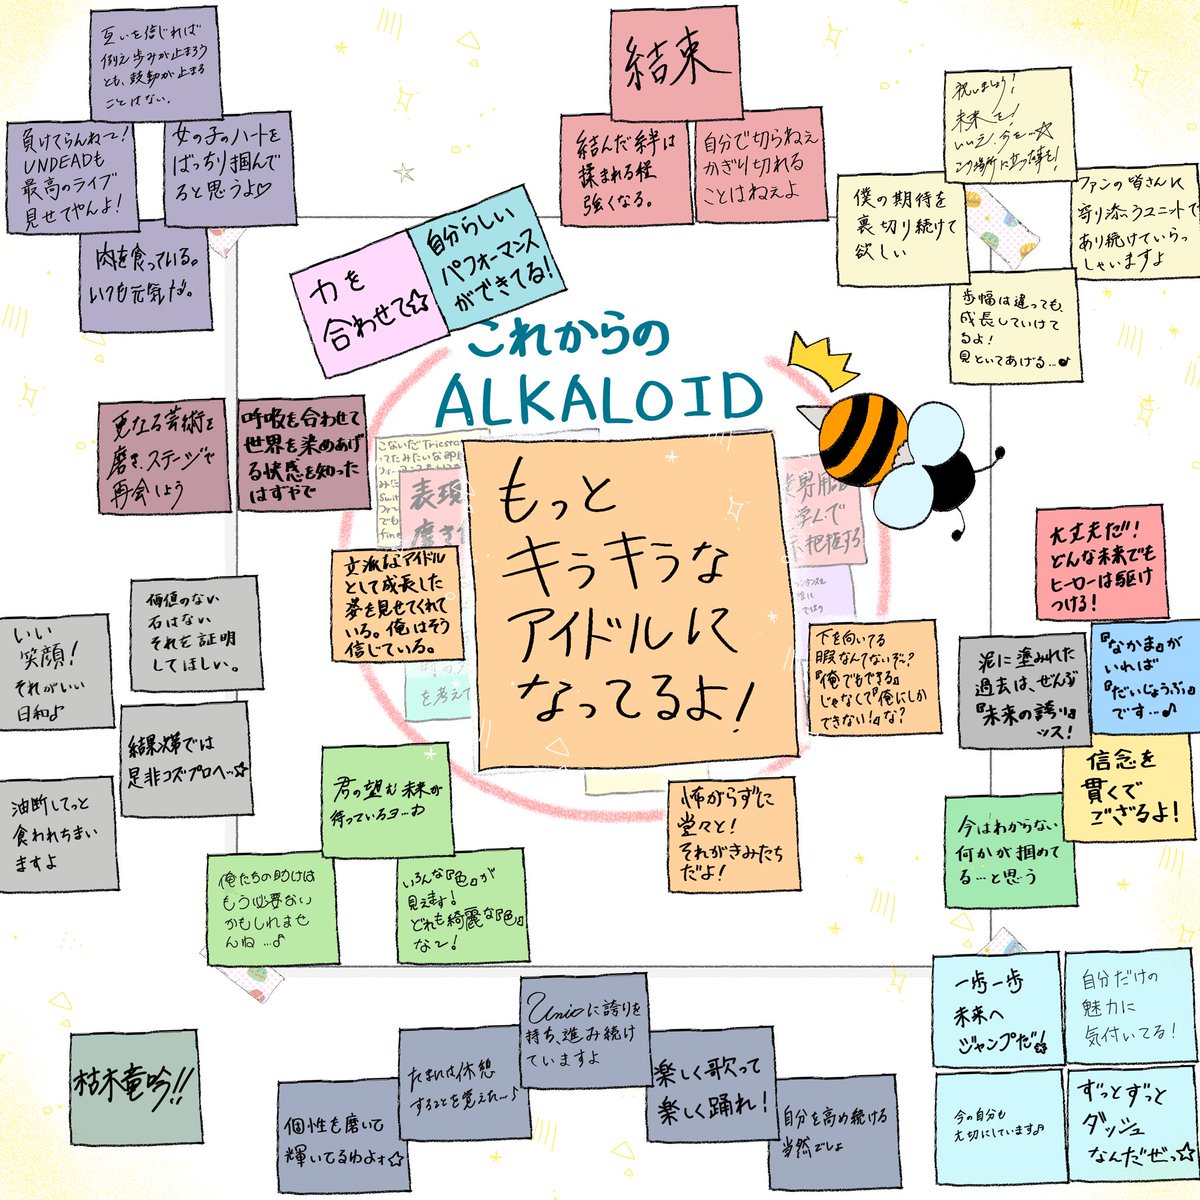 互いを信じれば
例え歩みが止まろう
とも、鼓動が止まる
ことはない。
負けてらんねェ!
UNDEADも
最高のライブ
見せてやんよ!
女の子のハートを
ばっちり掴んで
ると思うよ♡
肉を食っている。
いつも元気だ。
結束
結んだ絆は
揉まれる程
強くなる。
自分で切らねぇ
かぎり切れる
ことはねぇよ
祝いましょう!
未来を!
いいえ、今を…☆
この場所に立つ奇跡を!
僕の期待を
裏切り続けて
欲しい
ファンの皆さんに
寄り添うユニットで
あり続けていらっ
しゃいますよ
歩幅は違っても、
成長していけて
るよ!
見といてあげる…♪
力を
合わせて☆
自分らしい
パフォーマンス
ができてる!
これからの
ALKALOID
更なる芸術を
磨き、ステージで
再会しよう
呼吸を合わせて
世界を染めあげ
る快感を知った
はずやで
こないだTriesta
ってみたいな即
表現
磨き
学んで
把握する
を考えて
もっと
キラキラな
アイドルに
なってるよ!
立派なアイドル
として成長した
姿を見せてくれて
いる。俺はそう
信じている。
下を向いてる
暇なんてないぞ?
『俺でもできる』
じゃなくて『俺にしか
できない!』な?
怖がらずに
堂々と!
それがきみたち
だよ!
いい
笑顔!
それがいい
日和♪
価値のない
石はない
それを証明
してほしい。
結果次第では
是非コズプロへ…☆
油断してっと
食われちまい
ますよ
大丈夫だ!
どんな未来でも
ヒーローは駆け
つける!
泥に塗みれた
過去は、ぜんぶ
『未来の誇り』
ッス!
『なかま』が
いれば
『だいじょうぶ』
です…♪
信念を
貫くで
ござるよ!
今はわからない
何かが掴めて
る…と思う
君の望む未来が
待っているヨ…♪
俺たちの助けは
もう必要ない
かもしれませ
んね…♪
いろんな『色』が
見えます!
どれも綺麗な『色』
な〜!
枯木竜吟!!
個性を磨いて
輝いてるわよォ☆
たまには休憩
することを覚えた…♪
Unitに誇りを
持ち、進み続け
ていますよ
楽しく歌って
楽しく踊れ!
自分を高め続ける
当然でしょ
一歩一歩
未来へ
ジャンプだ!☆
自分だけの
魅力に
気付いてる!
今の自分も
大切にしています♪
ずっとずっと
ダッシュ
なんだぜっ☆